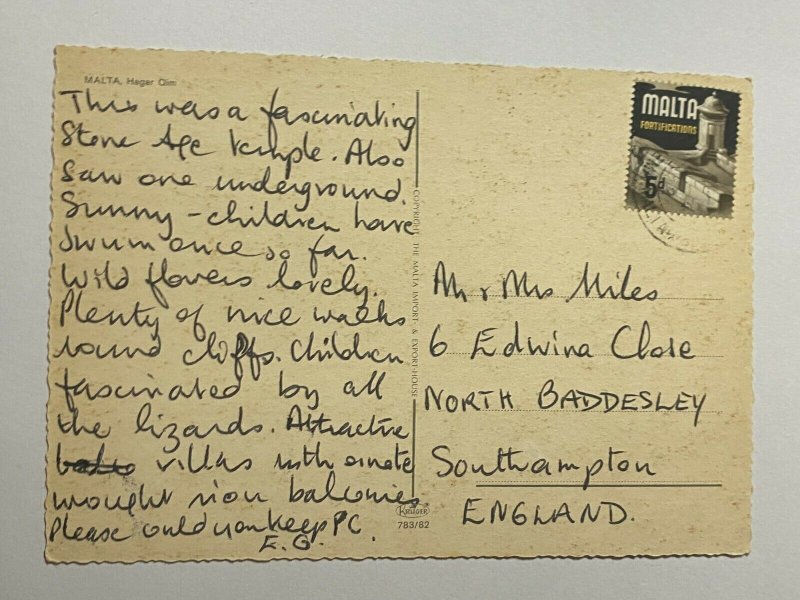 MALTA, Hagar Qim
This was a fascinating
Stone Age temple. Also
Saw one underground.
Sunny - children have
swum once so far.
Wild flowers lovely.
Plenty of nice walks
round cliffs. Children
fascinated by all
the lizards. Attractive
villas with ornate
wrought iron balconies
Please could you keep PC.
E.G.
COPYRIGHT THE MALTA IMPORT & EXPORT-HOUSE
KRÜGER
783/82
MALTA
FORTIFICATIONS
5d
Mr & Mrs Miles
6 Edwina Close
NORTH BADDESLEY
Southampton
ENGLAND.